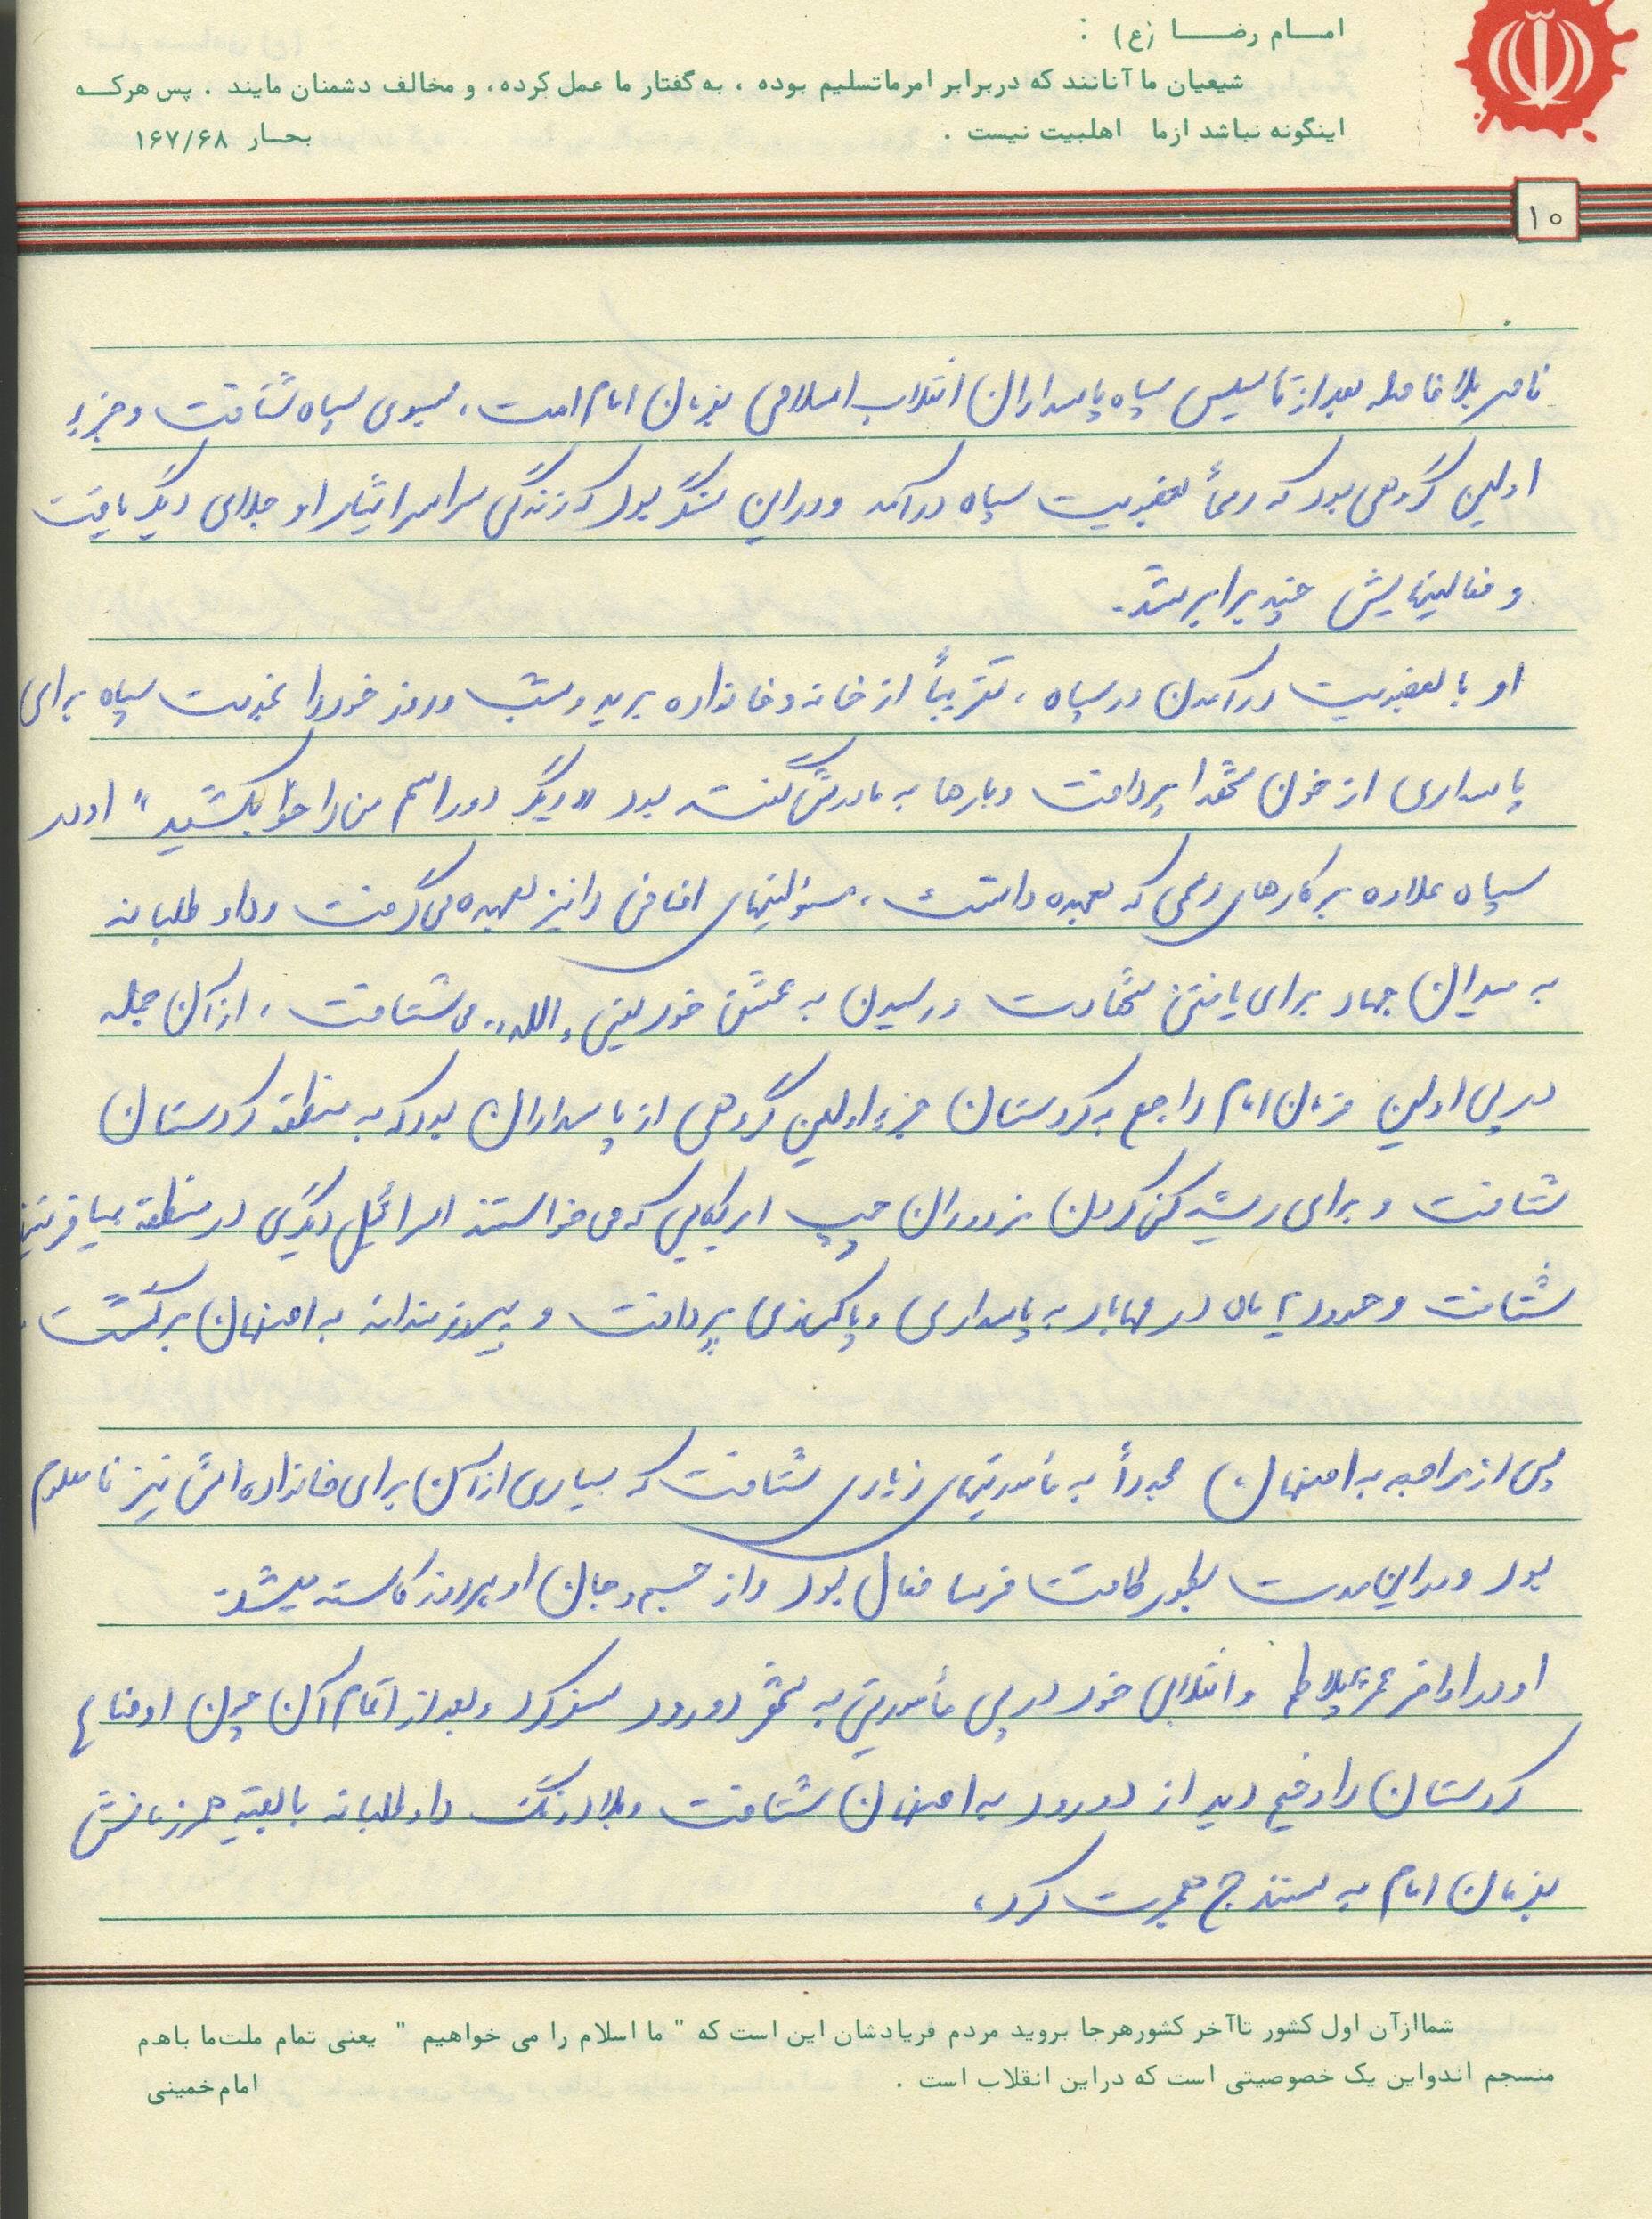 امام رضا (ع) :
شیعیان ما آنانند که دربرابر امرماتسلیم بوده ، به گفتار ما عمل کرده ، و مخالف دشمنان مایند . پس هرکه
اینگونه نباشد ازما اهلبیت نیست .
بحار ۱۶۷/۶۸
۱۰
ناصر بلافاصله بعد از تأسیس سپاه پاسداران انقلاب اسلامی بفرمان امام امت ، بسوی سپاه شتافت و جزء
اولین گروهی بود که رسماً بعضویت سپاه درآمد و در این سنگر بود که زندگی سراسر ایثار او جلای دیگر یافت
و فعالیتهایش چند برابر شد.
او با بعضویت درآمدن در سپاه ، تقریباً از خانه و خانواده برید و شب و روز خود را بخدمت سپاه برای
پاسداری از خون شهدا پرداخت و بارها به مادرش گفته بود « دیگر دور اسم من را خط بکشید » او در
سپاه علاوه بر کارهای رسمی که بعهده داشت ، مسئولیتهای اضافی را نیز بعهده می گرفت و داوطلبانه
به میدان جهاد برای یافتن شهادت و رسیدن به عشق خود یعنی «الله» می شتافت ، از آن جمله
در پی اولین فرمان امام راجع به کردستان جزء اولین گروهی از پاسداران بود که به منطقه کردستان
شتافت و برای ریشه کن کردن مزدوران چپ امریکایی که می خواستند اسرائیل دیگری در منطقه بیافرینند
شتافت و حدود ۲ ماه در مهاباد به پاسداری و پاکسازی پرداخت و پیروزمندانه به اصفهان برگشت .
پس از مراجعه به اصفهان مجدداً به مأموریتهای زیادی شتافت که بسیاری از آن برای خانواده اش نیز نامعلوم
بود و در این مدت بطور طاقت فرسا فعال بود و از جسم و جان او هر روز کاسته میشد.
او در اواخر عمر پرتلاطم و انقلابی خود در پی مأموریتی به شهر دورود سفر کرد و بعد از اتمام آن چون اوضاع
کردستان را وخیم دید از دورود به اصفهان شتافت و بلادرنگ داوطلبانه با بقیه همرزمانش
بفرمان امام به سنندج هجرت کرد ،
شماازآن اول کشور تاآخر کشورهرجا بروید مردم فریادشان این است که " ما اسلام را می خواهیم " یعنی تمام ملت‌ما باهم
منسجم اندواین یک خصوصیتی است که دراین انقلاب است .
امام‌خمینی